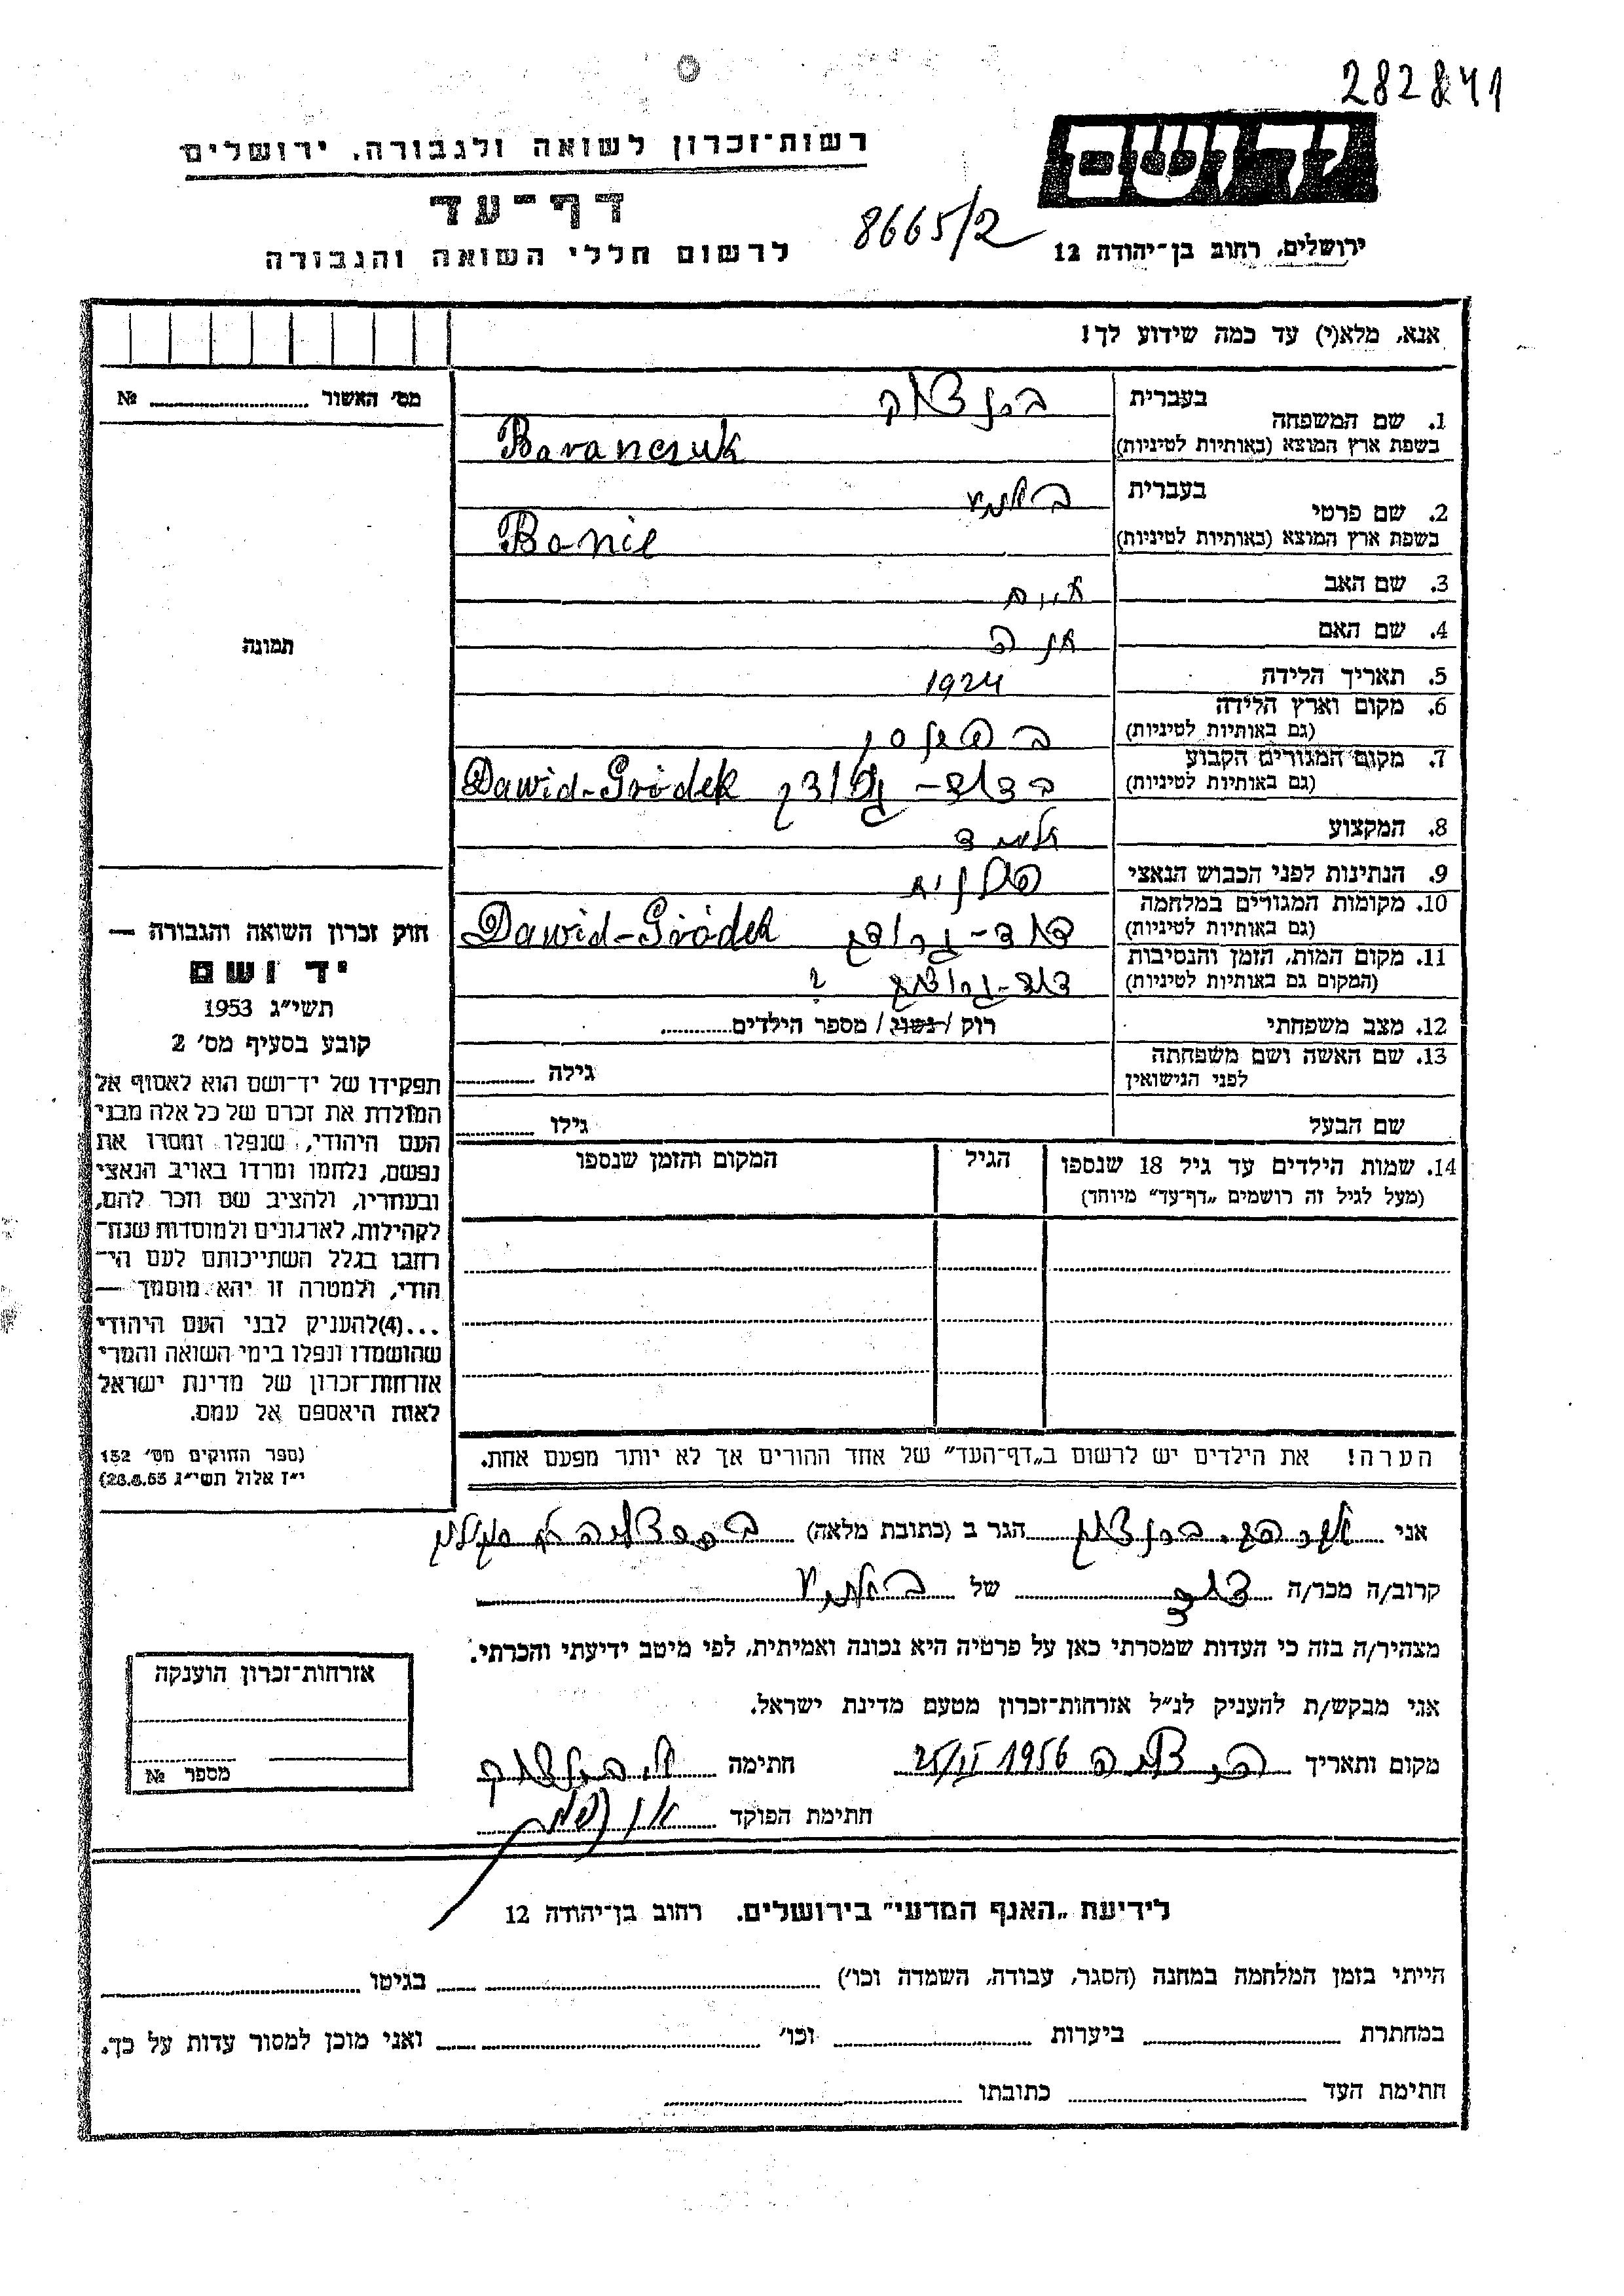 282841
רשות־זכרון לשואה ולגבורה, ירושלים
יד ושם
דף־עד
8665/2
לרשום חללי השואה והגבורה
ירושלים, רחוב בן־יהודה 12
אנא, מלא(י) עד כמה שידוע לך!
מס׳ האשור № 
1. שם המשפחה
בעברית
בשפת ארץ המוצא (באותיות לטיניות) Baranczuk
2. שם פרטי
בעברית
בשפת ארץ המוצא (באותיות לטיניות)
3. שם האב חיים
4. שם האם
5. תאריך הלידה 1924
6. מקום וארץ הלידה
(גם באותיות לטיניות)
7. מקום המגורים הקבוע
(גם באותיות לטיניות) Dawid-Gródek
8. המקצוע תלמיד
9. הנתינות לפני הכבוש הנאצי פולנית
10. מקומות המגורים במלחמה
(גם באותיות לטיניות) דוד-גרודק Dawid-Gródek
11. מקום המות, הזמן והנסיבות
(המקום גם באותיות לטיניות) דוד-גרודק ?
12. מצב משפחתי רוק / נשוי / מספר הילדים
13. שם האשה ושם משפחתה
לפני הנישואין גילה
שם הבעל גילו
14. שמות הילדים עד גיל 18 שנספו הגיל המקום והזמן שנספו
(מעל לגיל זה רושמים „דף־עד״ מיוחד)
הערה! את הילדים יש לרשום ב„דף־העד״ של אחד ההורים אך לא יותר מפעם אחת.
תמונה
חוק זכרון השואה והגבורה —
יד ושם
תשי״ג 1953
קובע בסעיף מס׳ 2
תפקידו של יד־ושם הוא לאסוף אל
המולדת את זכרם של כל אלה מבני
העם היהודי, שנפלו ומסרו את
נפשם, נלחמו ומרדו באויב הנאצי
ובעוזריו, ולהציב שם וזכר להם,
לקהילות, לארגונים ולמוסדות שנח־
רחבו בגלל השתייכותם לעם הי־
הודי, ולמטרה זו יהא מוסמך —
...(4)להעניק לבני העם היהודי
שהושמדו ונפלו בימי השואה והמרי
אזרחות־זכרון של מדינת ישראל
לאות היאספם אל עמם.
(ספר החוקים מס׳ 132
י״ז אלול תשי״ג 28.8.53)
אני הגר ב (כתובת מלאה)
קרוב/ה מכר/ה דוד של
מצהיר/ה בזה כי העדות שמסרתי כאן על פרטיה היא נכונה ואמיתית, לפי מיטב ידיעתי והכרתי.
אני מבקש/ת להעניק לנ״ל אזרחות־זכרון מטעם מדינת ישראל.
מקום ותאריך 1956 חתימה
חתימת הפוקד
אזרחות־זכרון הוענקה
מספר №
לידיעת „האגף המדעי״ בירושלים. רחוב בן־יהודה 12
הייתי בזמן המלחמה במחנה (הסגר, עבודה, השמדה וכו׳) בגיטו
במחתרת ביערות וכו׳ ואני מוכן למסור עדות על כך.
חתימת העד כתובתו